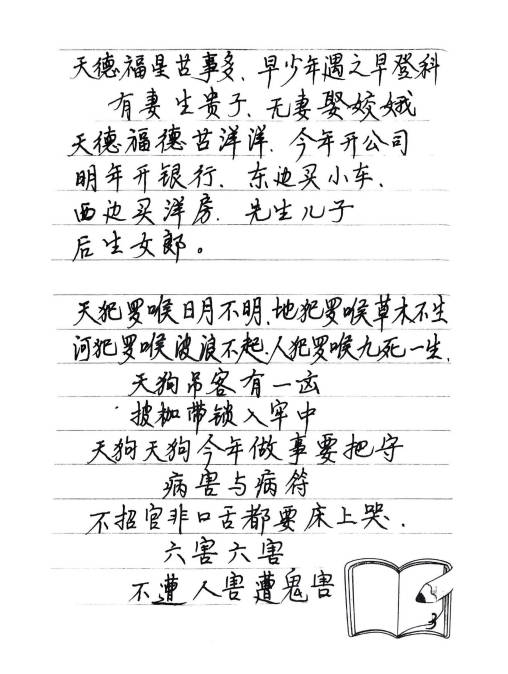 天德福星吉事多、早少年遇之早登科
有妻生贵子、无妻娶姣娥
天德福德吉洋洋、今年开公司
明年开银行、东边买小车、
西边买洋房、先生儿子
后生女郎。
天犯罗喉日月不明、地犯罗喉草木不生
河犯罗喉波浪不起、人犯罗喉九死一生、
天狗吊客有一凶
披枷带锁入牢中
天狗天狗今年做事要把守
病害与病符
不招官非口舌都要床上哭、
六害六害
不遭人害遭鬼害